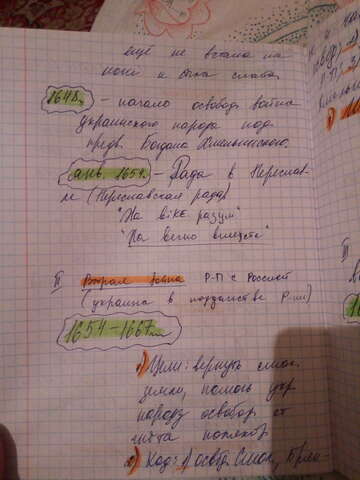 ещё не встала на
ноги и была слаба.
1648г. - начало освобод. война
украинского народа под
предв. Богдана Хмельницкого.
янв. 1654г. - Рада в Переслав-
ле (Переславская рада)
"На вiкi разум"
"На вечно вместе"
II Вторая война Р-П с Россией
(украина в подданстве Р-ии)
1654-1667гг
1) Цели: вернуть смол.
земли, помочь укр
народу освобод. от
гнёта
2) Ход: 1) освоб. Смол,